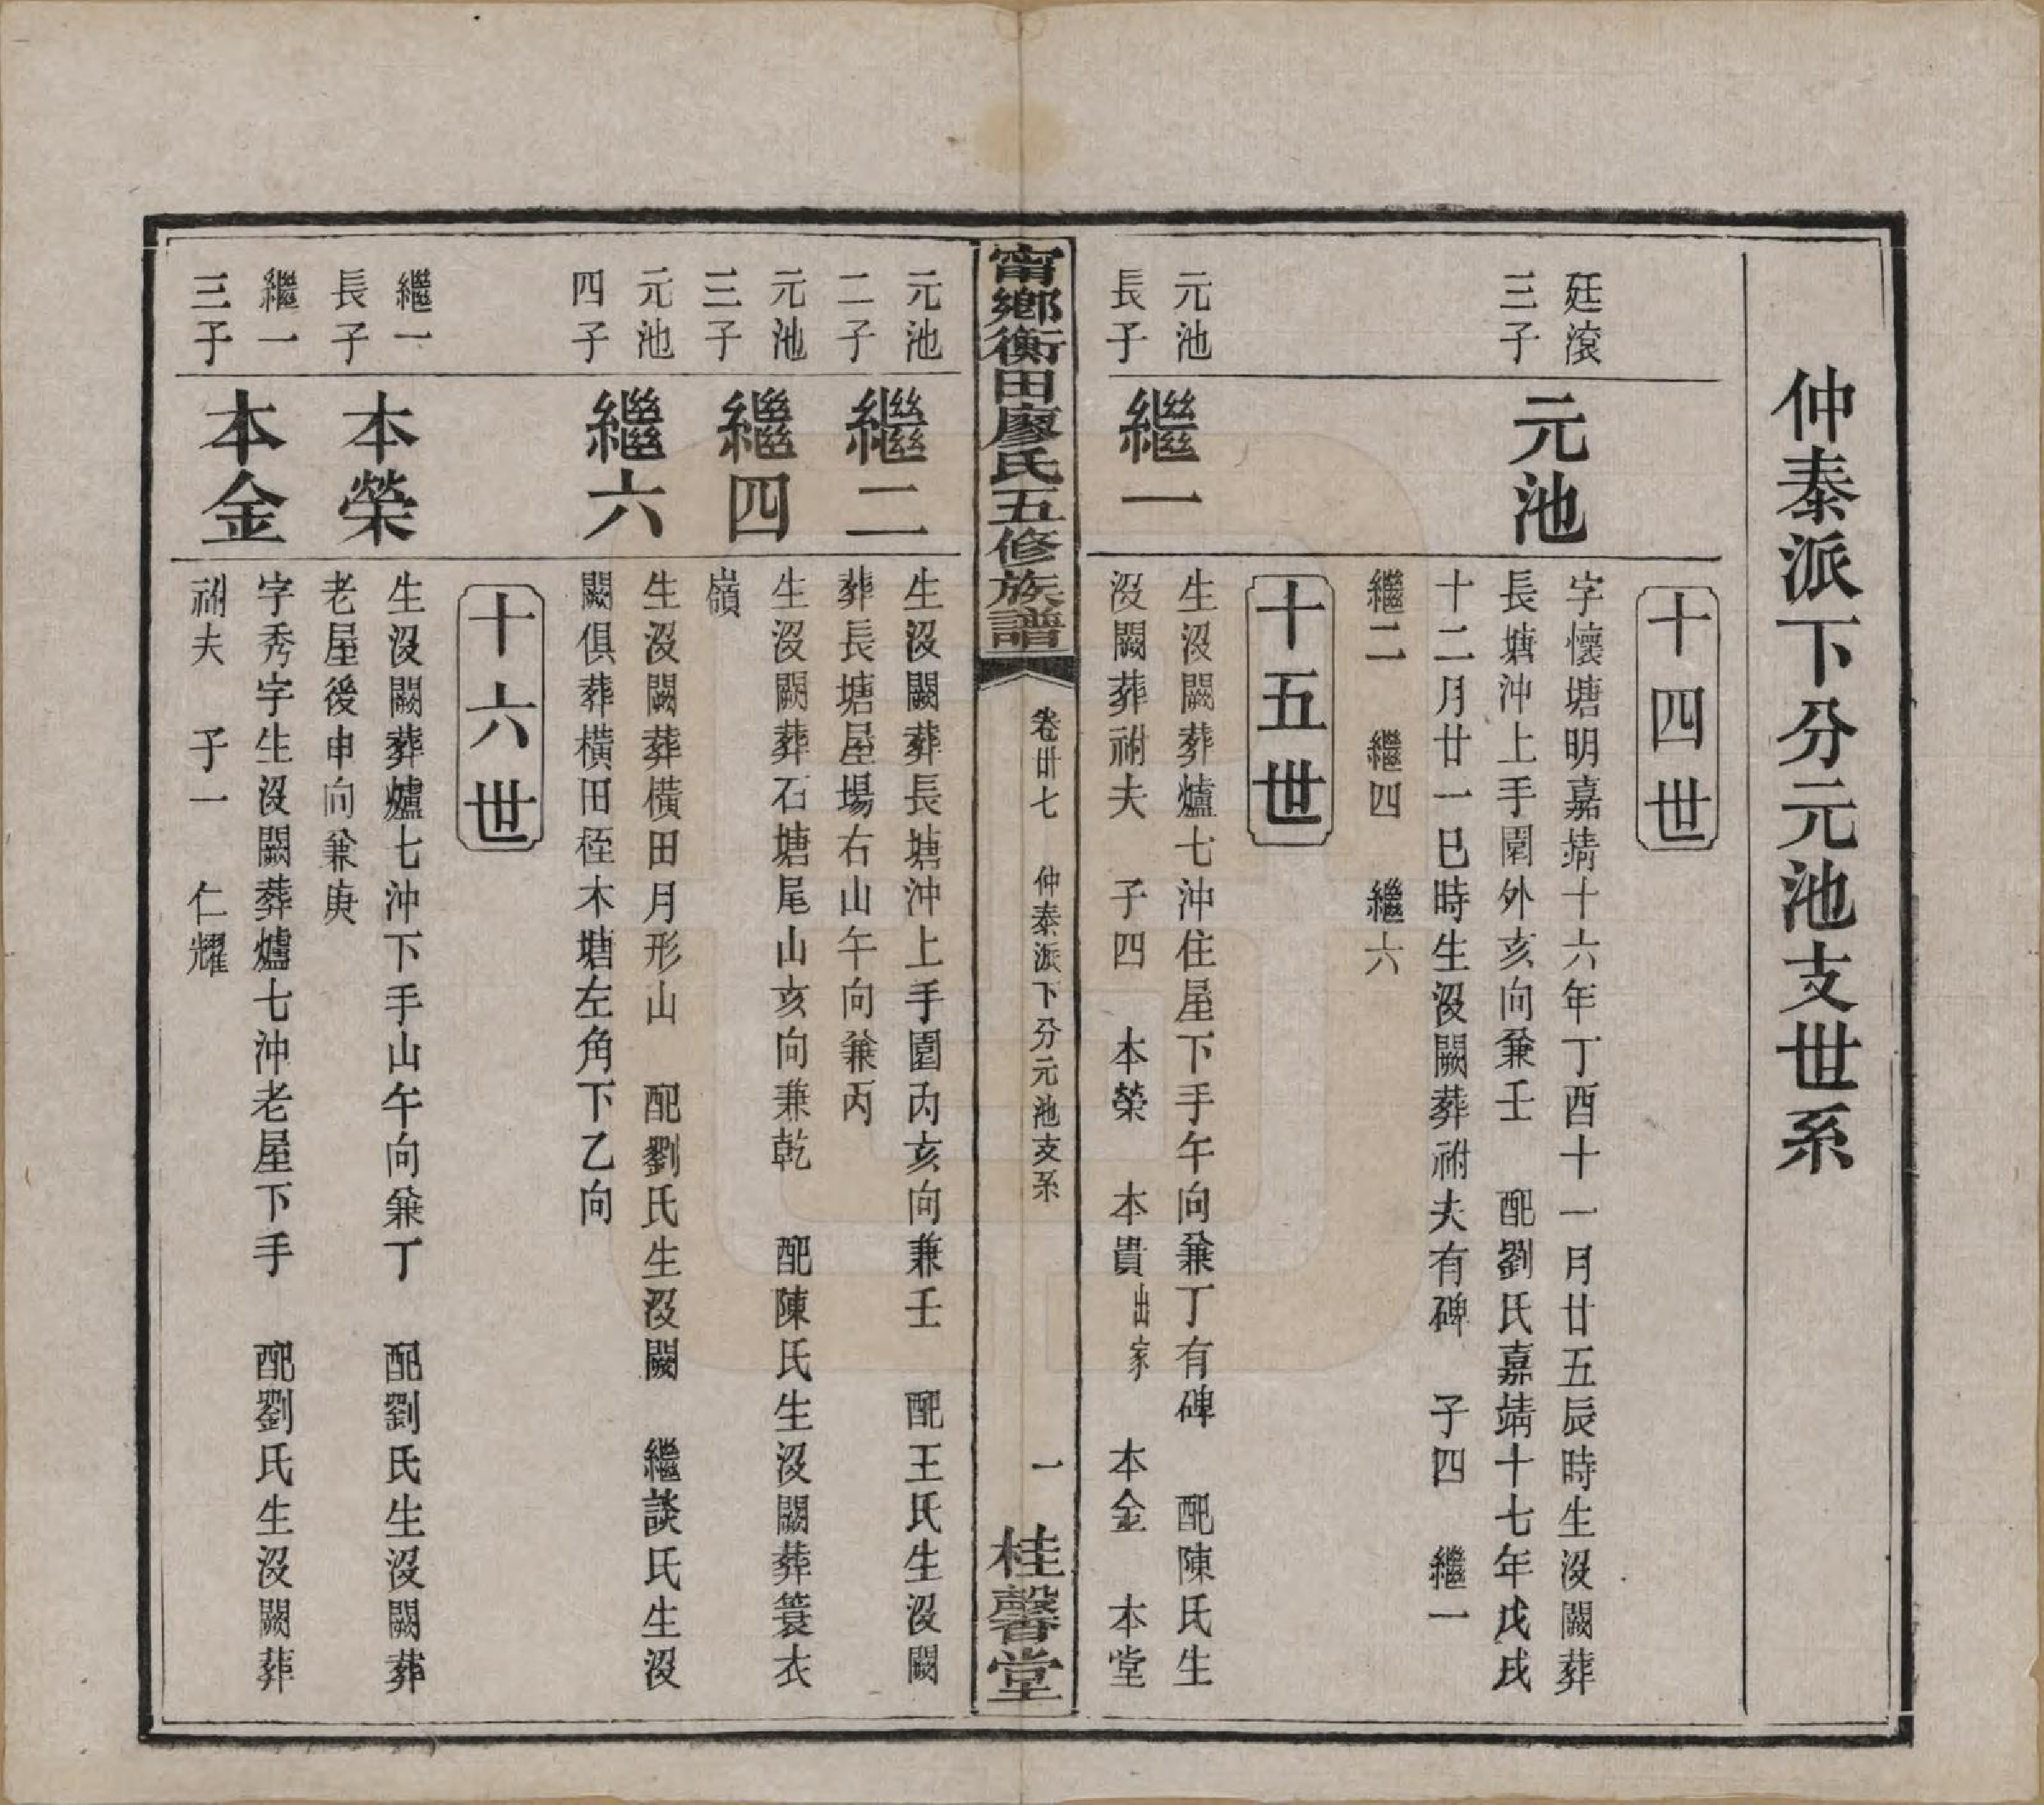 仲泰派下分元池支世系
十四世
廷滾
三子
元池
字懷塘明嘉靖十六年丁酉十一月廿五辰時生沒闕葬
長塘沖上手園外亥向兼壬 配劉氏嘉靖十七年戊戌
十二月廿一巳時生沒闕葬祔夫有碑 子四 繼一
繼二 繼四 繼六
十五世
元池
長子
繼一
生沒闕葬爐七沖住屋下手午向兼丁有碑 配陳氏生
沒闕葬祔夫 子四 本榮 本貴出家 本金 本堂
甯鄉衡田廖氏五修族譜
卷卅七 仲泰派下分元池支系
一
桂馨堂
元池
二子
繼二
生沒闕葬長塘沖上手園內亥向兼壬 配王氏生沒闕
葬長塘屋場右山午向兼丙
元池
三子
繼四
生沒闕葬石塘尾山亥向兼乾 配陳氏生沒闕葬簑衣
嶺
元池
四子
繼六
生沒闕葬橫田月形山 配劉氏生沒闕 繼談氏生沒
闕俱葬橫田桎木塘左角下乙向
十六世
繼一
長子
本榮
生沒闕葬爐七沖下手山午向兼丁 配劉氏生沒闕葬
老屋後申向兼庚
繼一
三子
本金
字秀字生沒闕葬爐七沖老屋下手 配劉氏生沒闕葬
祔夫 子一 仁耀